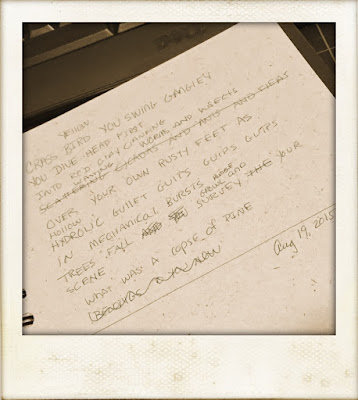 YELLOW
CRASS BIRD YOU SWING GANGLEY
YOU DIVE HEAD FIRST
INTO RED CLAY CHURNING
LEAVING WORMS AND INSECTS
SCATTERING CICADAS AND ANTS AND FLEAS
OVER YOUR OWN RUSTY FEET AS
HOLLOW
HYDROLIC GULLET GULPS GULPS GULPS
IN MECHANICAL BURSTS
TREES FALL AND SURVEY THE YOUR
SCENE
WHAT WAS A COPSE OF PINE
Aug 19, 2015